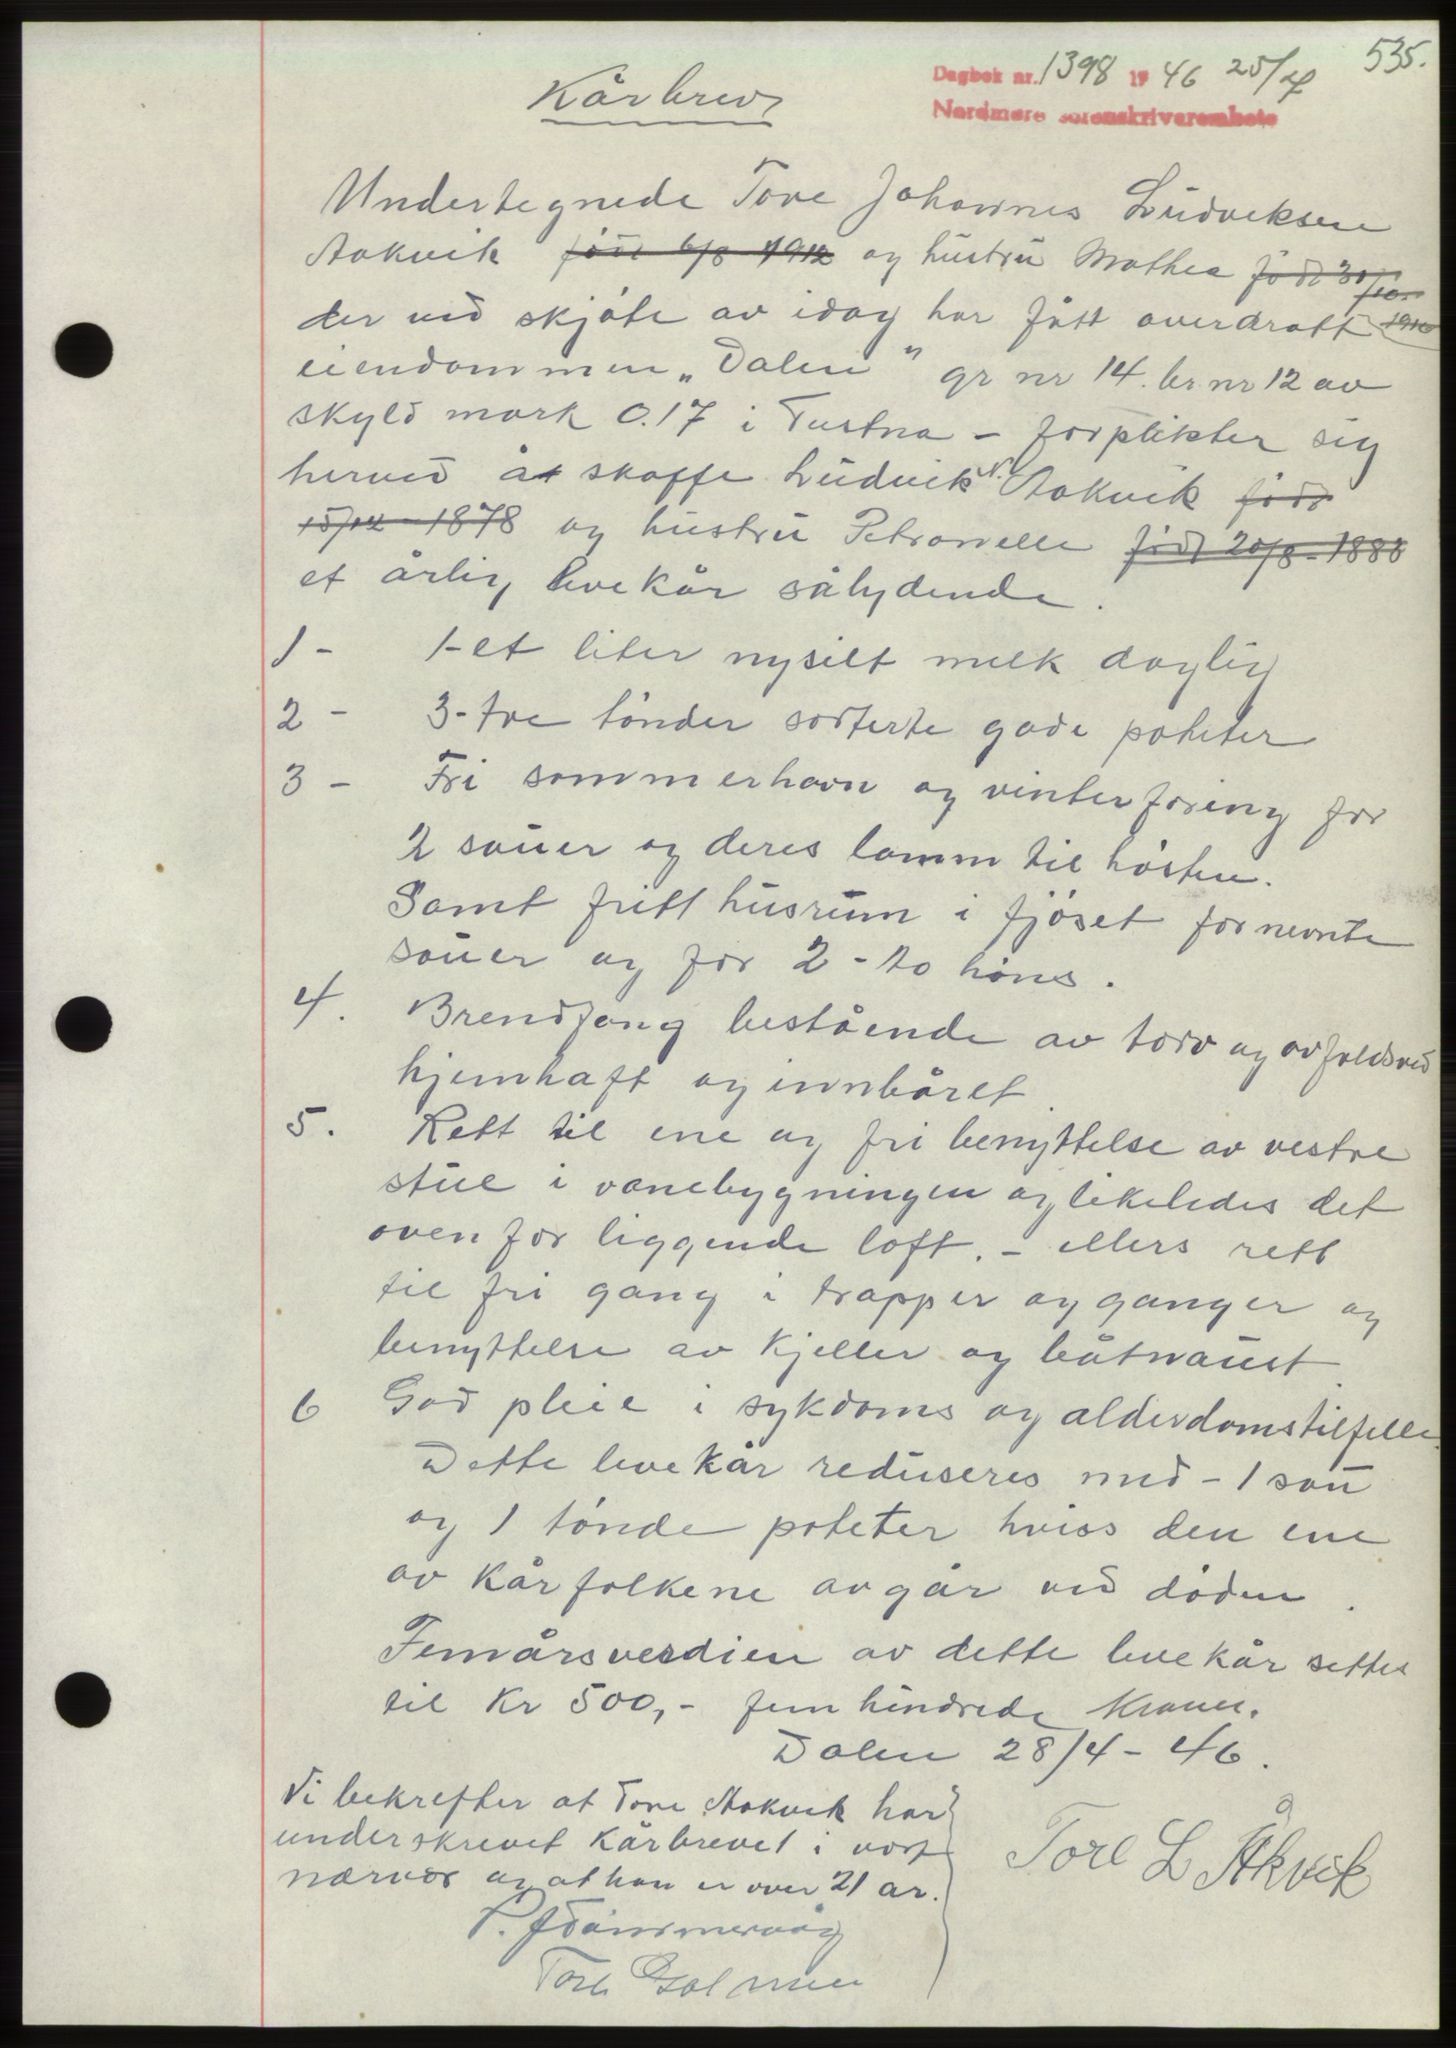 535.
Dagbok nr. 1398 19 46 25/7
Nordmøre sorenskriverembete
Kårbrev
Undertegnede Tore Johannes Ludviksen
Aakvik født 6/8 1912 og hustru Mathea født 30/10-
1916
der ved skjøte av idag har fått overdratt
eiendommen „Dalen" gr nr 14. br nr 12 av
skyld mark 0.17 i Tustna - forplikter sig
herved åt skaffe Ludvik N. Aakvik født
15/12 - 1878 og hustru Petronelle født 20/8 - 1888
et årlig levekår sålydende.
1 - 1-et liter nysilt melk daglig
2 - 3-tre tønder sorterte gode poteter
3 - Fri sommerhavn og vinterforing for
2 sauer og deres lamm til høsten.
Samt fritt husrum i fjøset for nevnte
sauer og for 2-to høns.
4. Brendfang bestående av torv og avfaldsved
hjemhaft og innbåret
5. Rett til ene og fri benyttelse av vestre
stue i vånebygningen og likeledes det
ovenfor liggende loft. - ellers rett
til fri gang i trapper og ganger og
benyttelse av kjeller og båtnaust
6 God pleie i sykdoms og alderdomstilfelle.
Dette levekår reduseres med - 1 sau
og 1 tønde poteter hviss den ene
av kårfolkene avgår ved døden.
Femårsverdien av dette levekår settes
til Kr 500,- fem hundrede kroner.
Dalen 28/4 - 46.
Vi bekrefter at Tore Aakvik har
underskrevet kårbrevet i vort
nærvær og at han er over 21 år.
Tore L Åkvik
P.
Tore